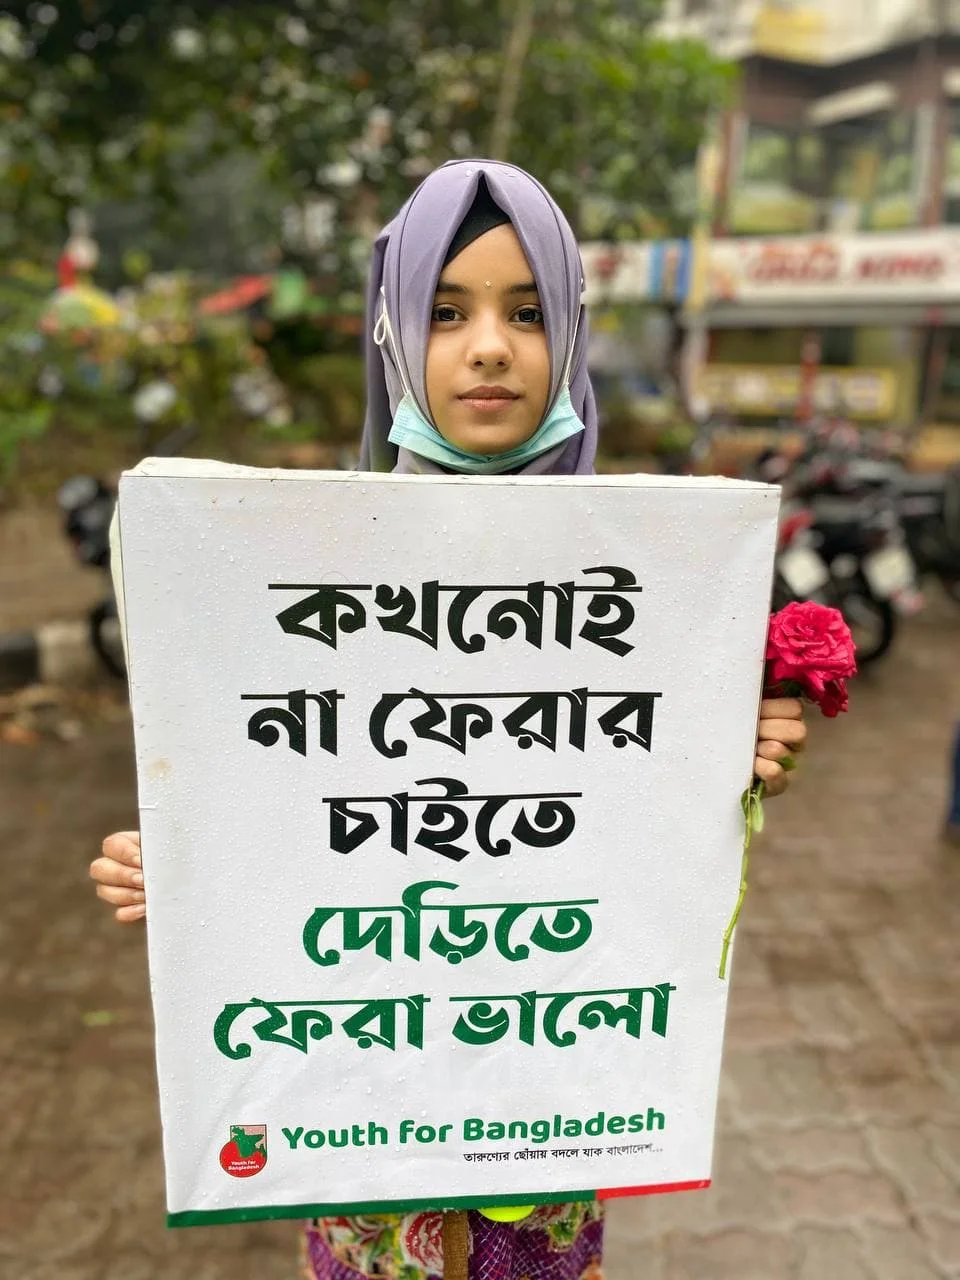 কখনোই
না ফেরার
চাইতে
দেড়িতে
ফেরা ভালো
Youth for Bangladesh
তারুণ্যের ছোঁয়ায় বদলে যাক বাংলাদেশ...
Youth for
Bangladesh